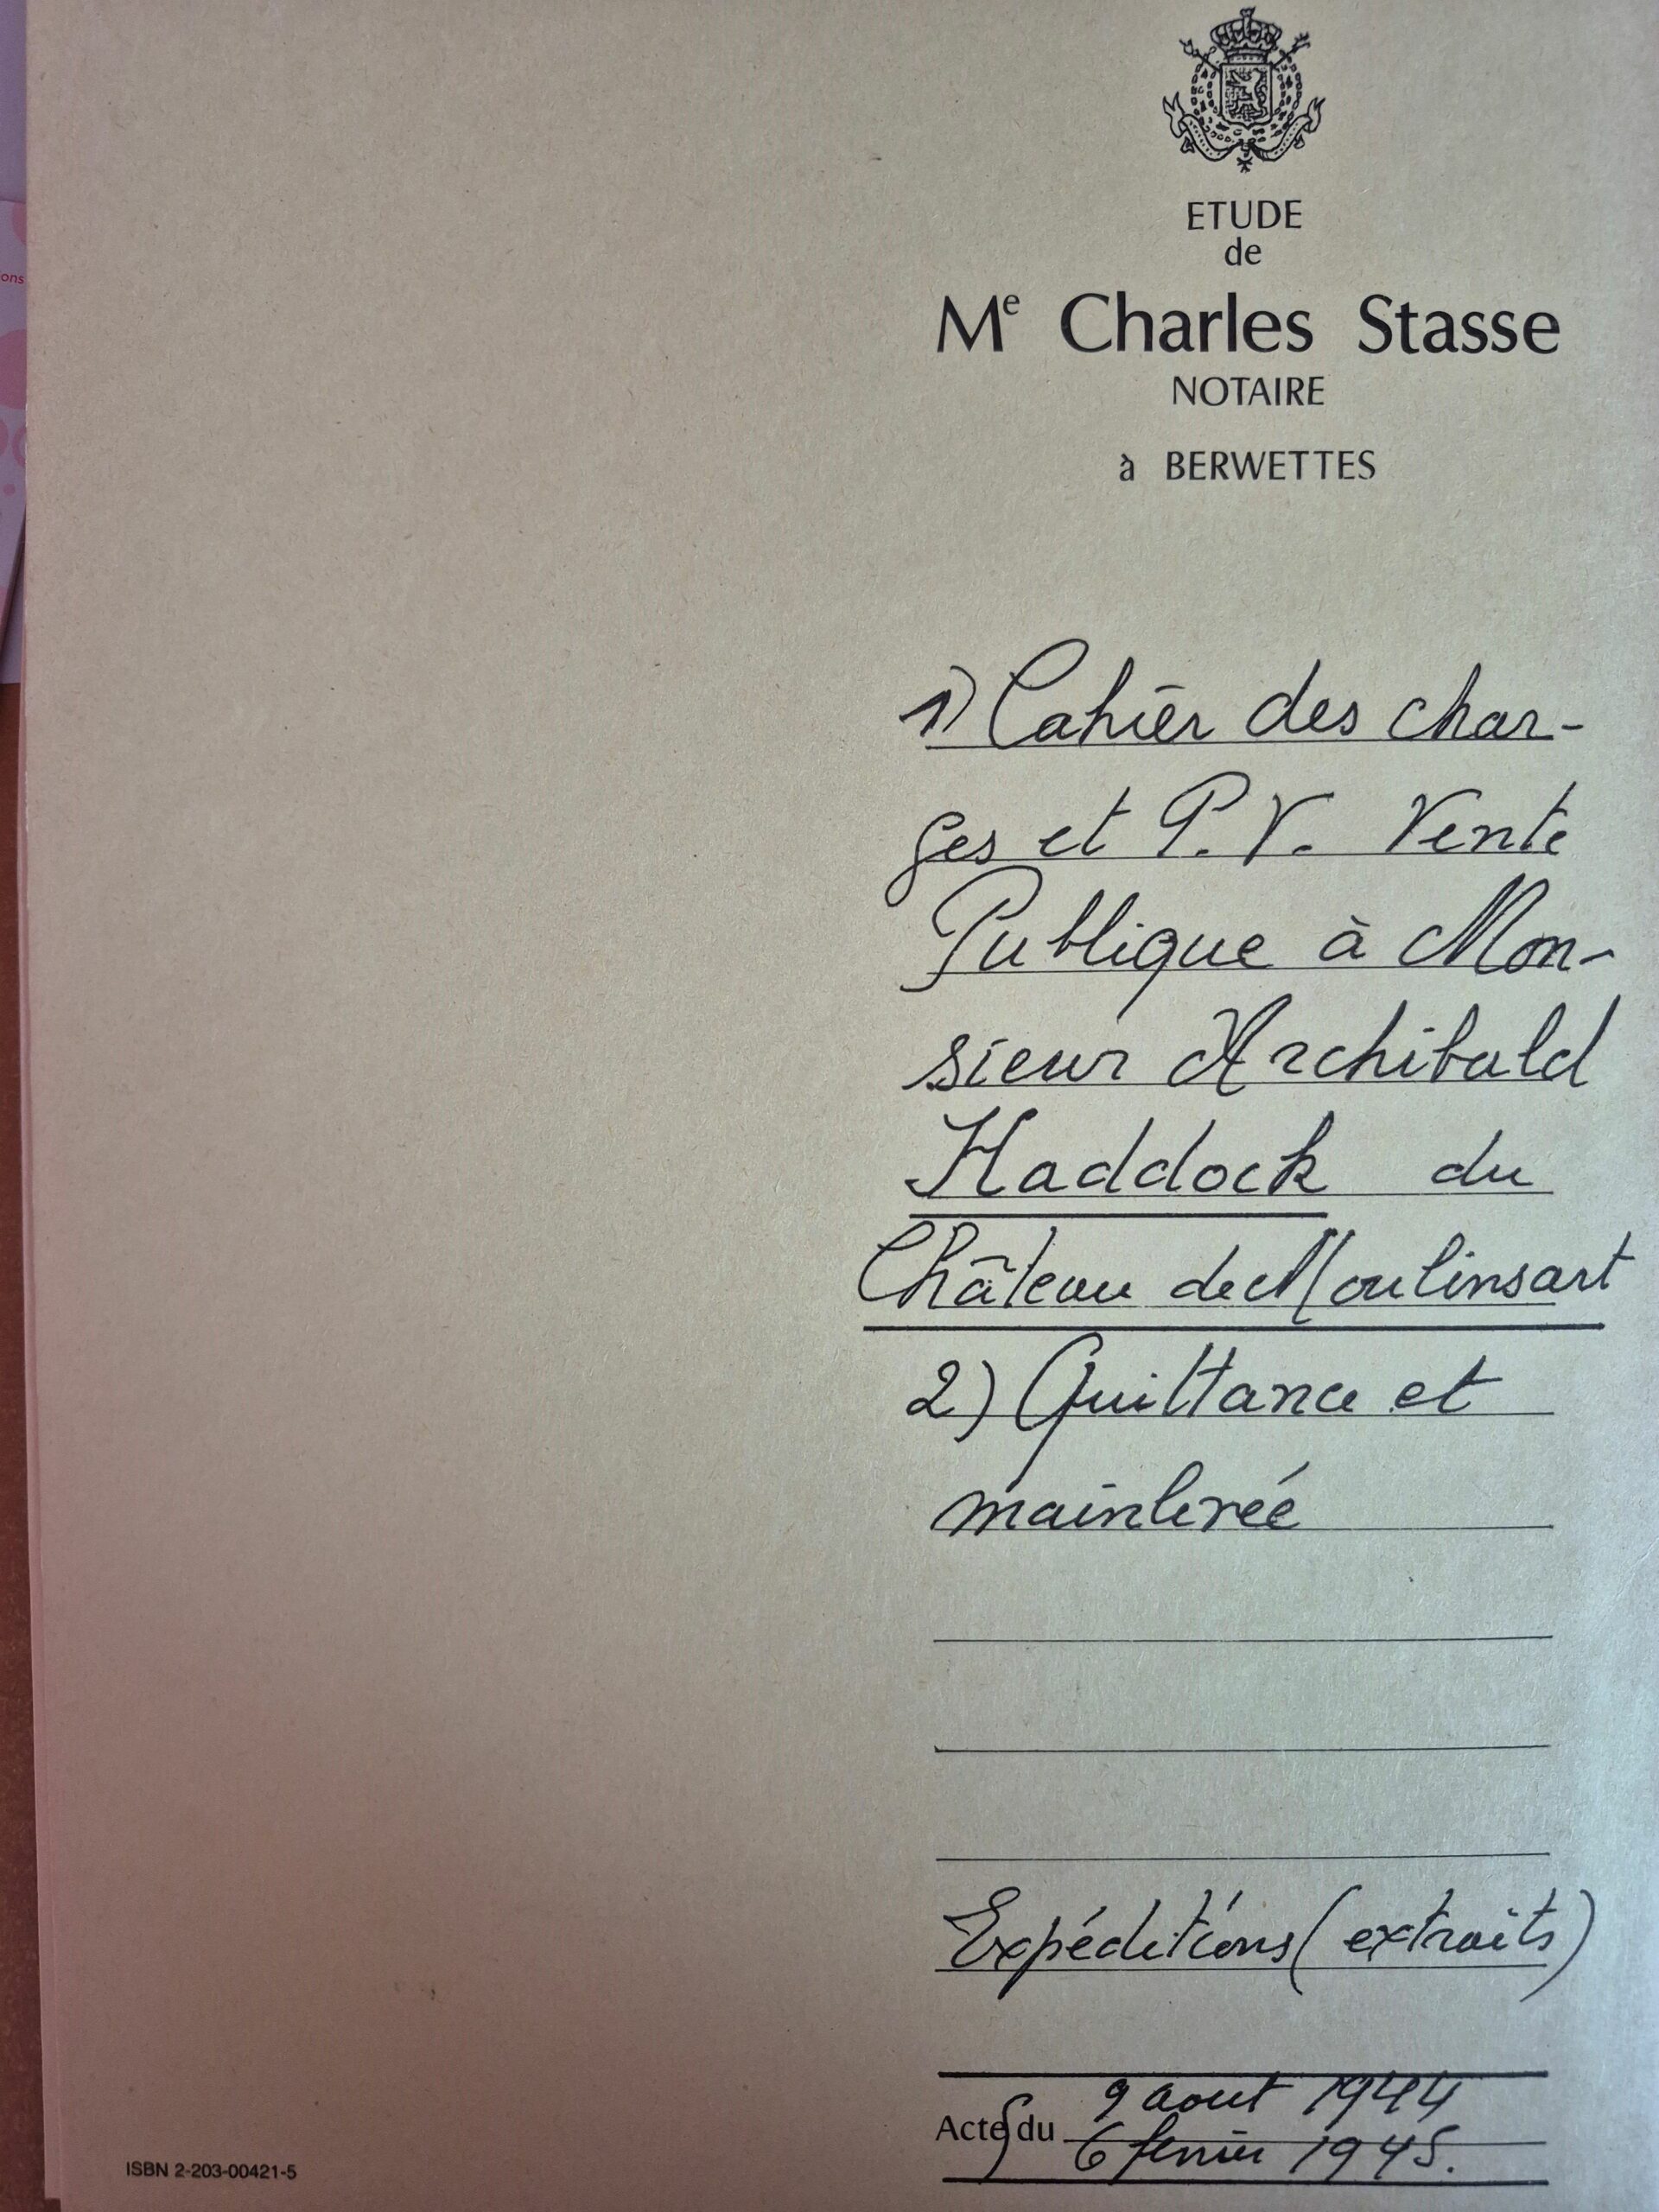 ons
ETUDE
de
Me Charles Stasse
NOTAIRE
à BERWETTES
1) Cahier des char-
ges et P.V. Vente
Publique à Mon-
sieur Archibald
Haddock du
Château de Moulinsart
2) Quittance et
mainlevée
Expéditions (extraits)
9 aout 1944
Actes du
6 fevrier 1945.
ISBN 2-203-00421-5